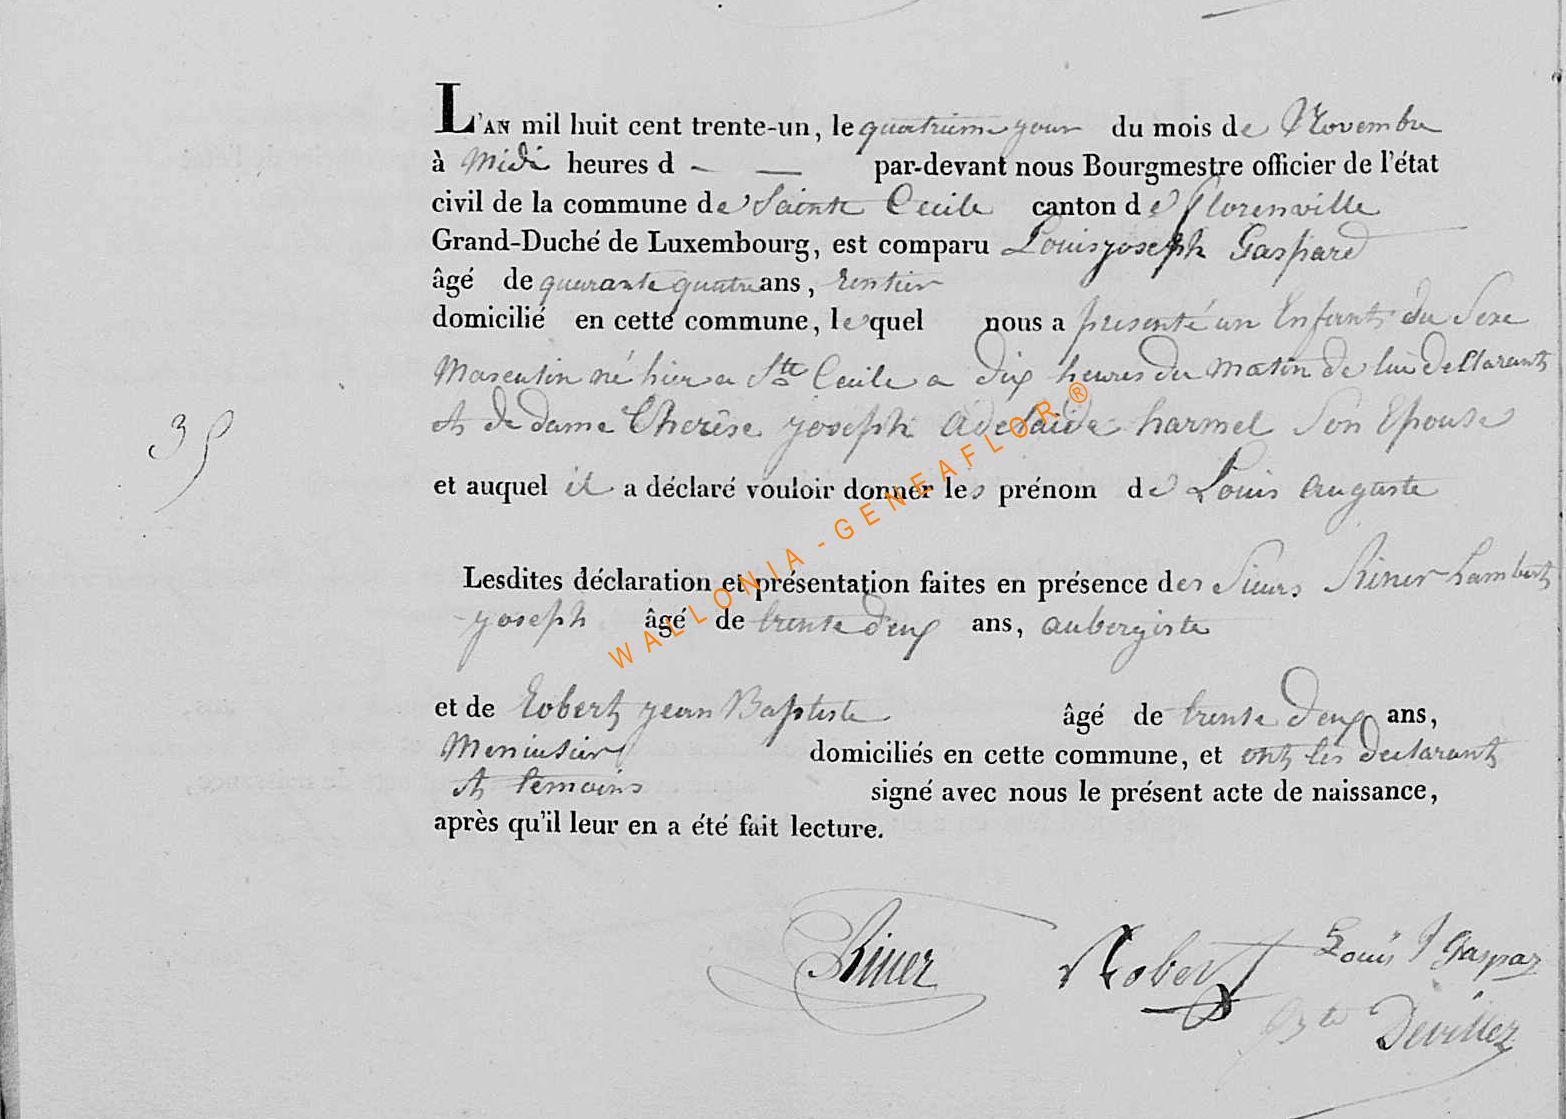 L'AN mil huit cent trente-un, le quatrieme jour du mois de Novembre
à Midi heures d - — par-devant nous Bourgmestre officier de l'état
civil de la commune de Sainte Cecile canton de Florenville
Grand-Duché de Luxembourg, est comparu Louis joseph Gaspard
âgé de quarante quatre ans, rentier
domicilié en cette commune, lequel nous a presenté un Enfant du Sexe
Masculin né hier a Ste Cecile a dix heures du matin de lui declarant
et de dame Therêse joseph adelaide harmel Son Epouse
35
et auquel il a déclaré vouloir donner les prénom de Louis auguste
Lesdites déclaration et présentation faites en présence des Sieurs Riner Lambert
joseph âgé de trente deux ans, aubergiste
et de Robert jean Baptiste âgé de trente deux ans,
Menuisier domiciliés en cette commune, et ont les declarant
et temoins signé avec nous le présent acte de naissance,
après qu'il leur en a été fait lecture.
Riner Robert Louis J Gaspar
Devillez
WALLONIA - GENEAFLOR ®